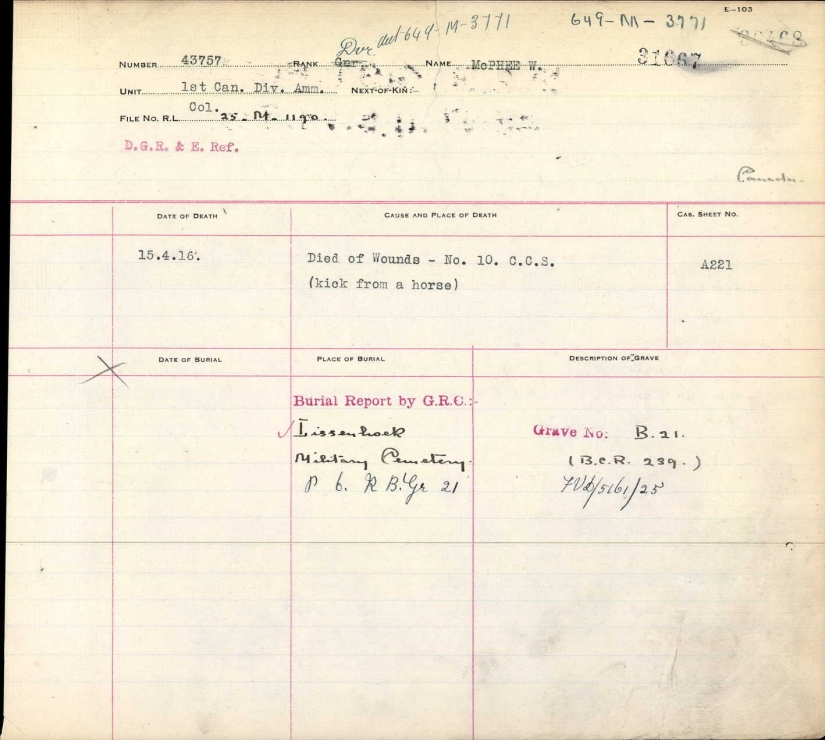 E-103
Dvr. aut 649-M-3771 649-M-3771
NUMBER 43757 RANK Gnr. NAME McPHEE W. 31667
UNIT 1st Can. Div. Amm. NEXT-OF-KIN:-
Col.
FILE NO. R.L. 25-M-1190.
D.G.R. & E. Ref.
Canada.
DATE OF DEATH CAUSE AND PLACE OF DEATH CAS. SHEET NO.
15.4.16. Died of Wounds - No. 10. C.C.S. A221
(kick from a horse)
DATE OF BURIAL PLACE OF BURIAL DESCRIPTION OF GRAVE
Burial Report by G.R.C.:-
Lissenhoek Grave No: B.21.
Military Cemetery. (B.C.R. 239.)
P 6. R B. Gr 21